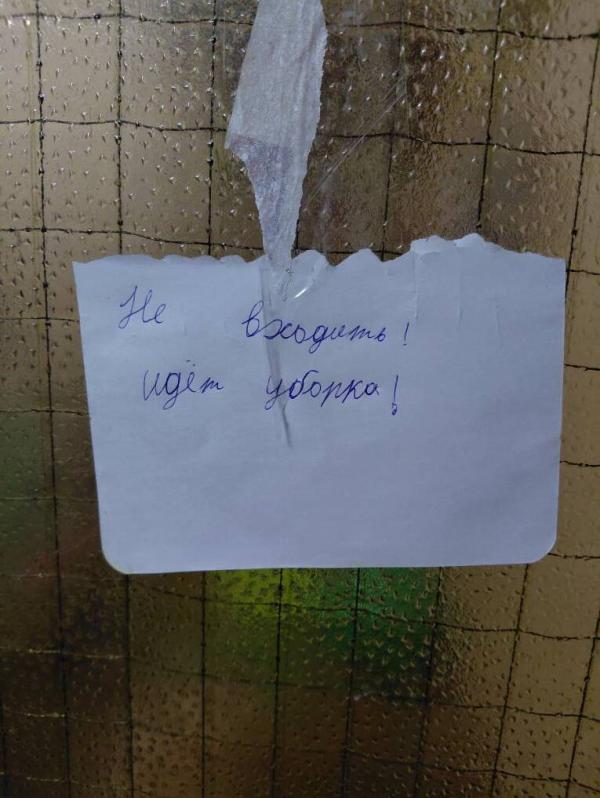 Не входить!
идёт уборка!